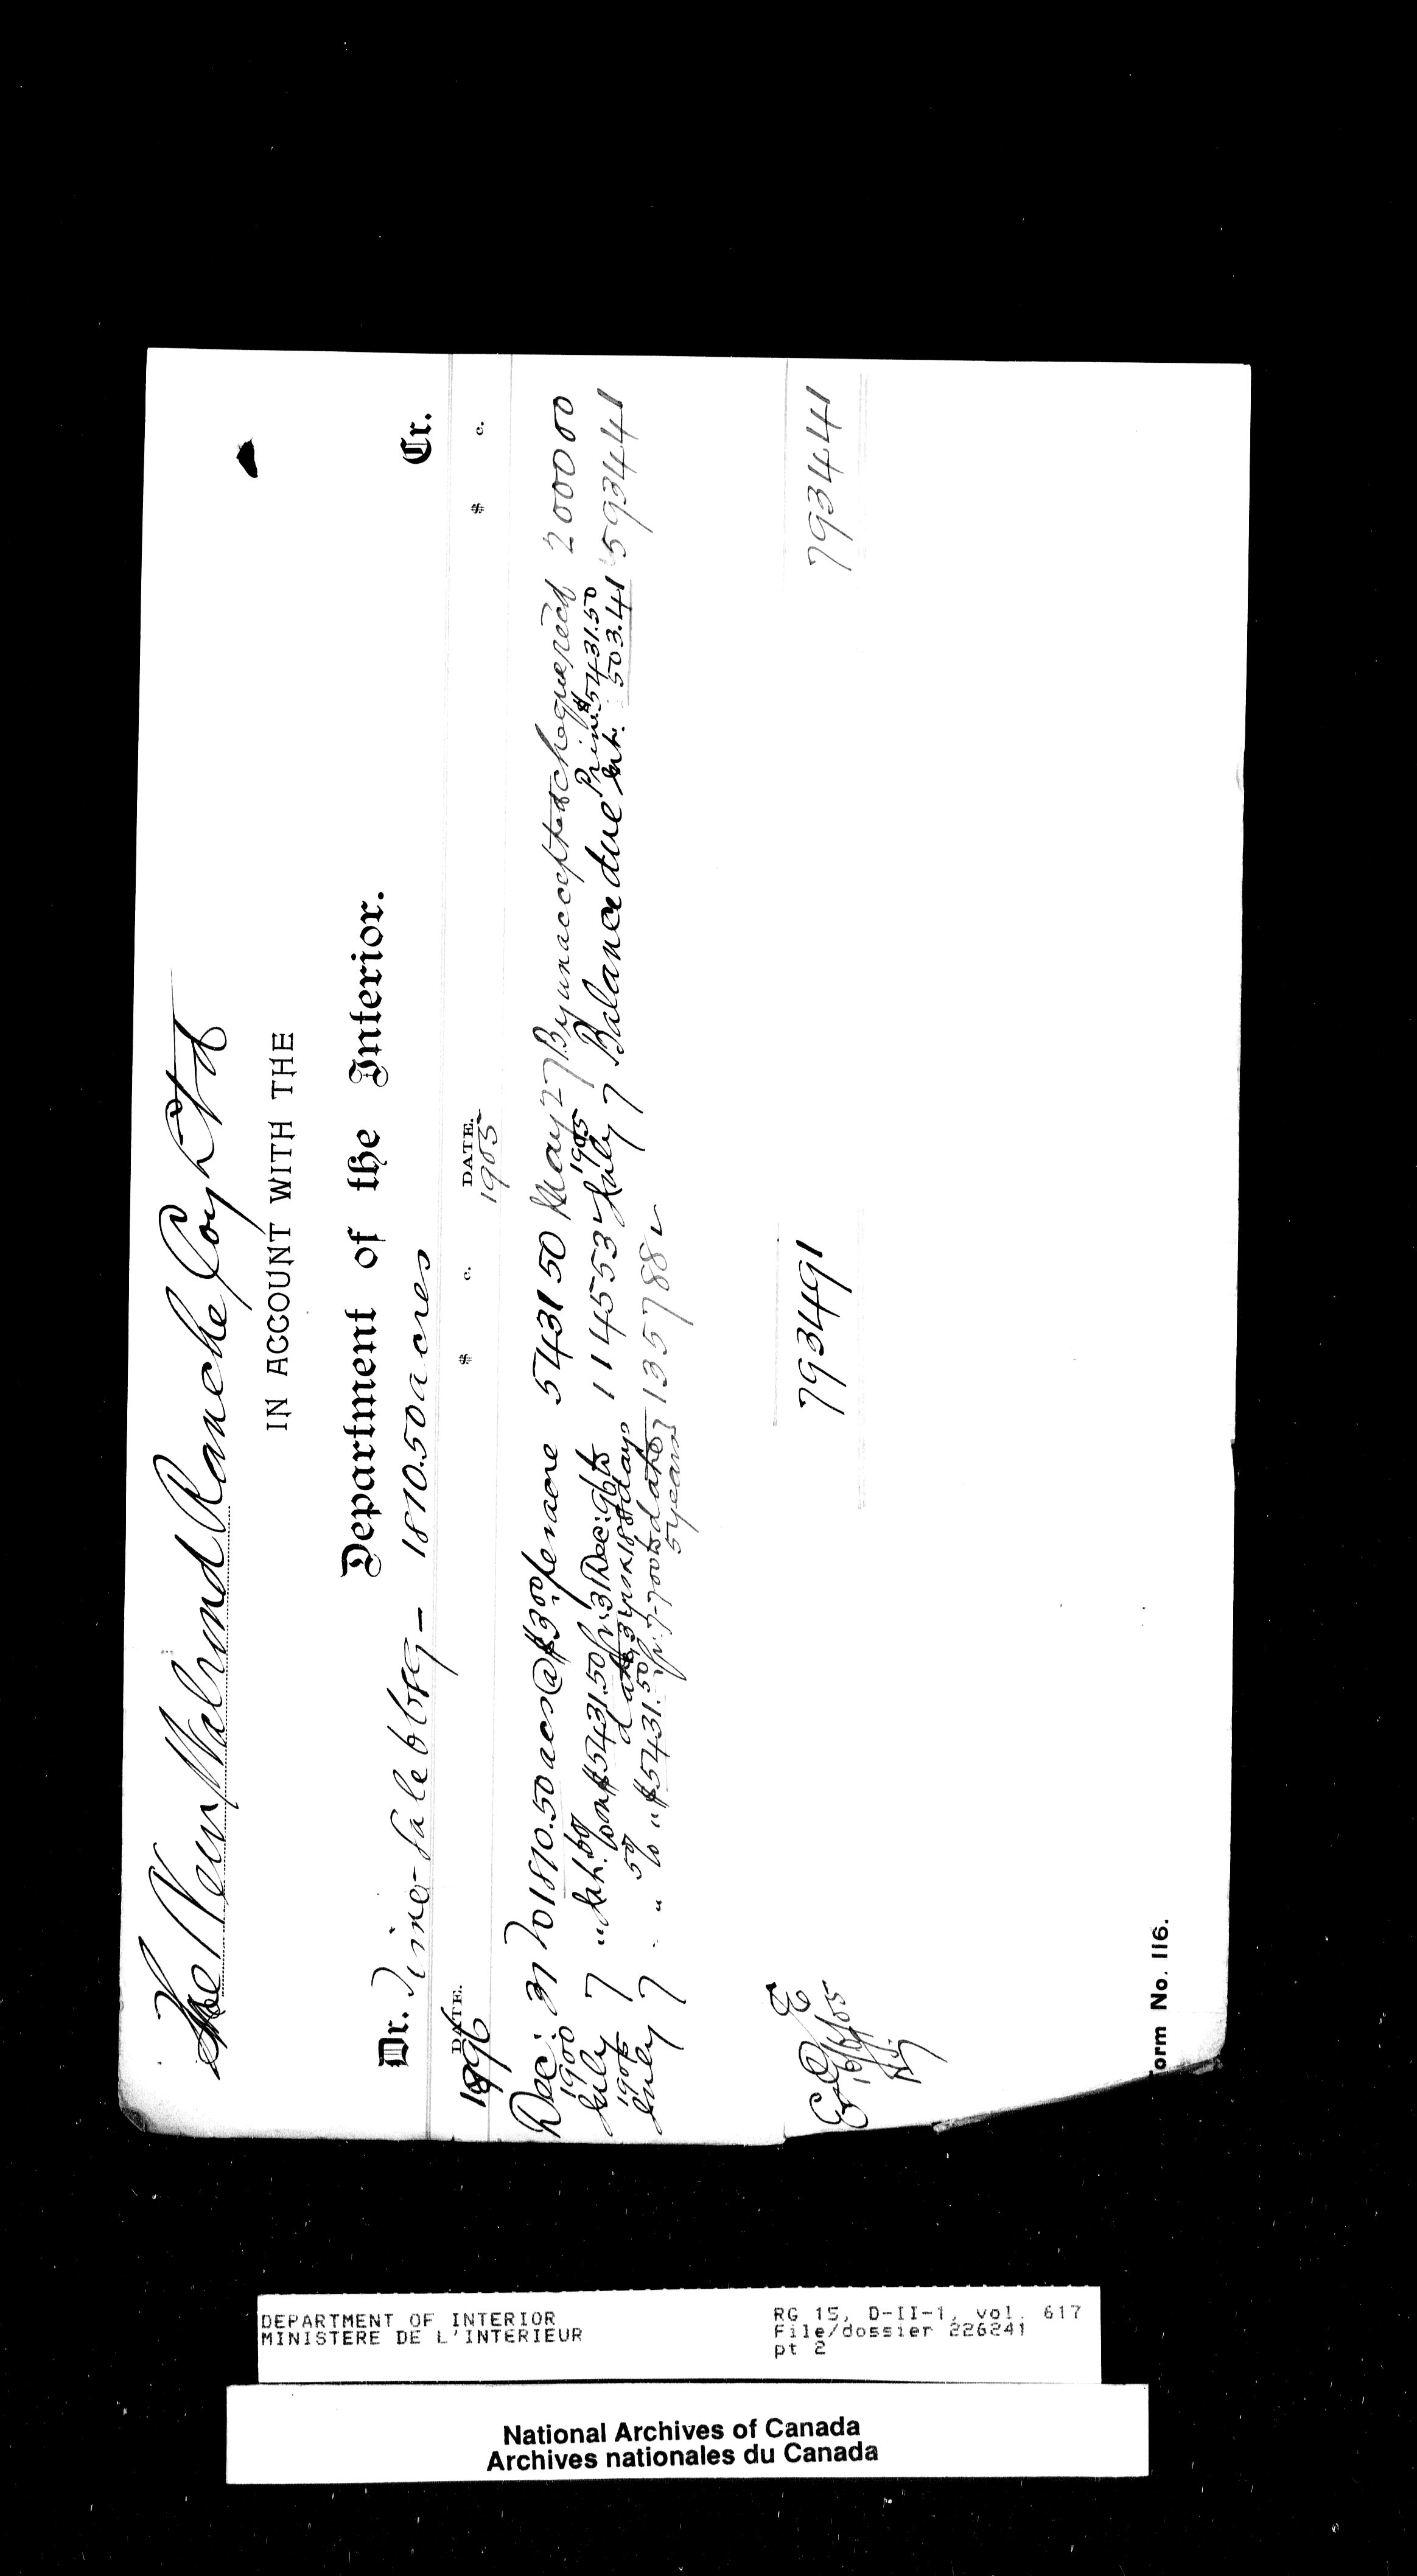 The New Walrond Ranche Coy Ltd
IN ACCOUNT WITH THE
Department of the Interior.
Dr. Time-Sale 6669 - 1810.50 acres Cr.
DATE. $ c. DATE. $ c.
1896 1905
Dec: 31 To 1810.50 acs @ $3.00 per acre 5431 50 May 27 By unaccepted cheque recd 2000 00
1900 1905 Prin: $5431.50
July 7 " Int. 6% on $5431.50 fr: 31 Dec: 96 to 1145 53 July 7 Balance due Int. 503.41 5934 41
date 3 yrs & 188 days
1905
July 7 " " 5% " $5431.50 fr. 7-7-00 to date 1357 88
5 years
7934 91 7934 41
E & O E
Form No. 116.
DEPARTMENT OF INTERIOR
MINISTERE DE L'INTERIEUR
RG 15, D-II-1, vol. 617
File/dossier 226241
pt 2
National Archives of Canada
Archives nationales du Canada